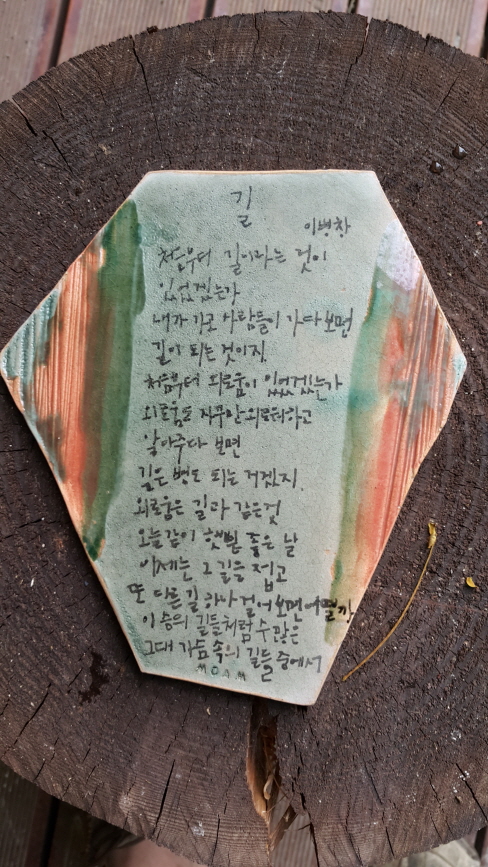 길
이병창
처음부터 길이라는 것이
있었겠는가
내가 가고 사람들이 가다보면
길이 되는 것이지
처음부터 외로움이 있었겠는가
외로움도 자꾸만 외로워하고
알아주다 보면
깊은 병도 되는 거겠지.
외로움은 길과 같은것
오늘같이 햇빛 좋은 날
이제는 그 길은 접고
또 다른 길 하나 걸어보면 어떨까
이 승의 길들처럼 수많은
그대 가슴 속의 길들 중에서
MOAM